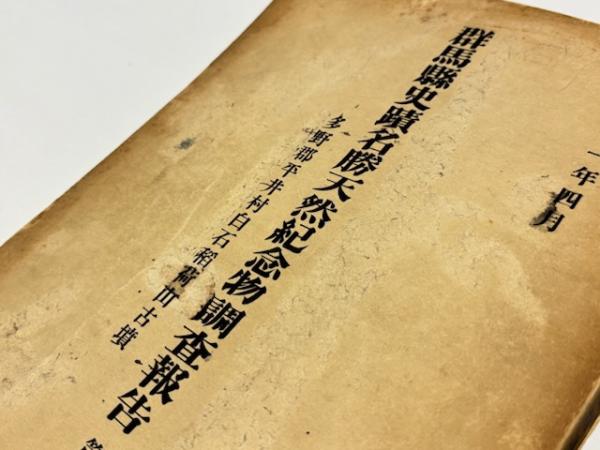 一年四月
群馬縣史蹟名勝天然紀念物調査報告
多野郡平井村白石稻荷山古墳